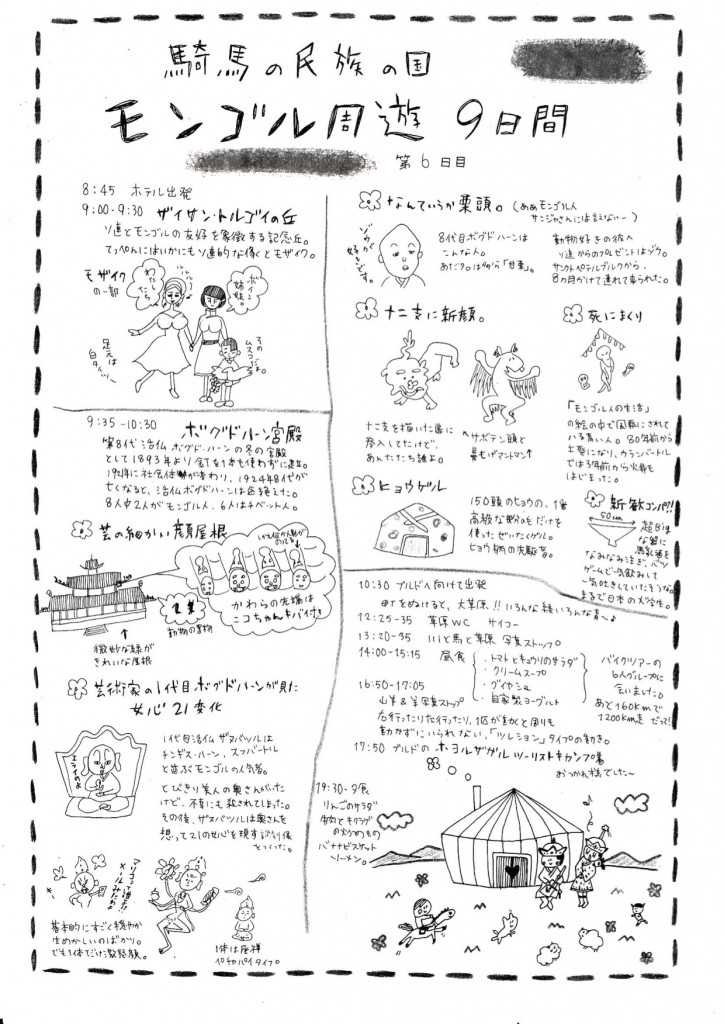 騎馬の民族の国
モンゴル周遊 9日間
第6日目
8:45 ホテル出発
9:00-9:30 ザイサン・トルゴイの丘
ソ連とモンゴルの友好を象徴する記念丘。
てっぺんにはいかにもソ連的な像とモザイク。
モザイクの一部
わたしたち
ボイン姉妹。
そのムスコだよ。
足元は白タイツ〜
9:35-10:30 ボグドハーン宮殿
第8代活仏ボグド・ハーンの冬の宮殿
として1893年より釘を1本も使わずに建立。
1921年に社会体制が変わり、1924年8代が
亡くなると、活仏ボグドハーンは
8人中2人がモンゴル人、6人はチベット人。
芸の細かい顔屋根
かわらの先端は
ニコちゃん
動物の置物
微妙な緑が
きれいな屋根
芸術家の1代目ボグドハーンが見た
女心21変化
エライのよ
1代目活仏ザナバザルは
チンギス・ハーン、スフバートル
と並ぶモンゴルの人気者。
とびきり美人の奥さんがいた
けど、不幸にも殺されてしまった。
その後、ザナバザルは奥さんを
想って21の女心を現す仏像
をつくった。
基本的にすごく穏やか
なまめかしいのばかり。
でも1体だけは激怒顔。
1体は座禅
ペチャパイタイプ。
なんていうか栗頭。(ああモンゴル人
サンジャさんには言えない〜)
ゾウが好きです。
8代目ボグドハーンは
こんな人。
動物好きの彼へ
ソ連からのプレゼントはゾウ。
サンクトペテルブルクから、
8ヵ月かけて連れて来られた。
十二支に新顔。
十二支を描いた画に
参入してたけど、
あんたたち誰よ。
サボテン頭と
鼻もげマントマン↑
死にまくり
「モンゴル人の生活」
の絵の中で鳥葬にされて
いる青い人。80年前から
土葬になり、ウランバートル
では3年前から火葬も
はじまった。
ヒョウゲル
150頭のヒョウの、1番
高級な部分だけを
使ったぜいたくゲル。
ヒョウ柄の先駆者。
新歓コンパ!!
50cm
超Big
な器に
馬乳酒を
なみなみ注ぎ、バツ
ゲームで一気飲みして
一気吐きしていたそうな。
まるで日本の大学生。
10:30 ブルドへ向けて出発
町をぬけると、大草原!!いろんな緑いろんな青〜♪
12:25-35 草原WC サイコー
13:20-35 川と馬と草原 写真ストップ。
14:00-15:15 昼食
・トマトとキュウリのサラダ
・クリームスープ
・グイヤシュ
・自家製ヨーグルト
バイクツアーの
6人グループに
会いました。
あと160kmで
1200km走だって!
16:50-17:05
山羊&羊写真ストップ
右行ったり左行ったり、1匹が動くと周りも
動かずにいられない、「ツレション」タイプの動き。
17:50 ブルドのホヨルザガル ツーリストキャンプ着
おつかれ様でした〜
19:30- 夕食
りんごのサラダ
牛肉とキクラゲ
の炒めもの
バナナビスケット
ソーメン。